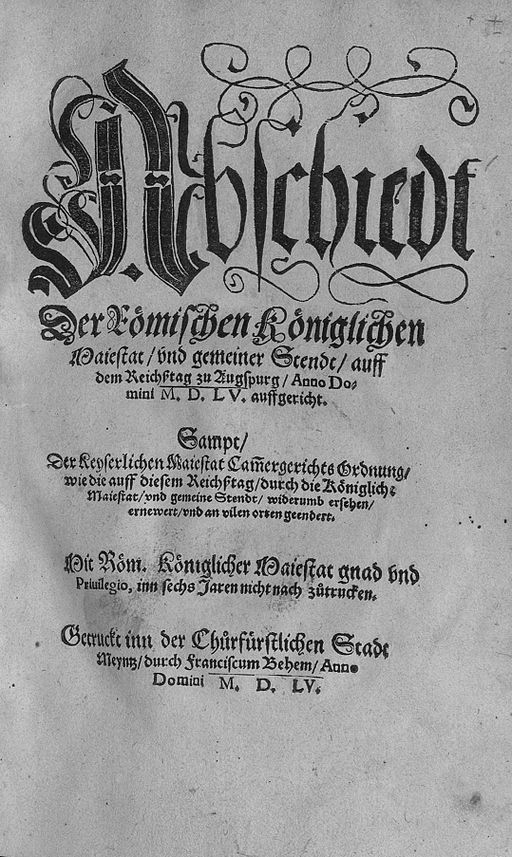 Abschiedt
Der Römischen Königlichen
Maiestat/ vnd gemeiner Stendt/ auff
dem Reichßtag zu Augspurg/ Anno Do-
mini M. D. L V. auffgericht.
Sampt/
Der Keyserlichen Maiestat Cam̃ergerichts Ordnung/
wie die auff diesem Reichßtag/ durch die Königlich-
Maiestat/ vnd gemeine Stendt/ widerumb ersehen/
ernewert/ vnd an vilen orten geendert.
Mit Röm. Königlicher Maiestat gnad vnd
Priuilegio, inn sechs Jaren nicht nach zůtrucken.
Getruckt inn der Chůrfürstlichen Stadt
Meyntz/ durch Franciscum Behem/ Anno
Domini M. D. LV.